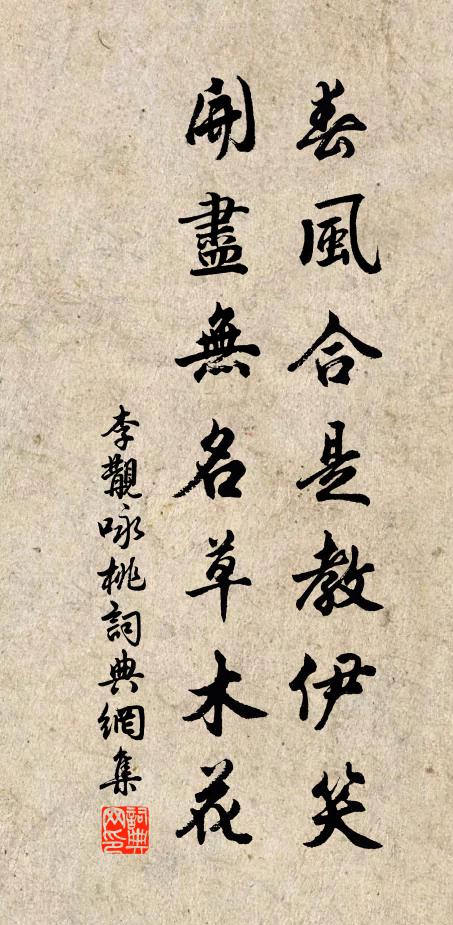 春風合是教伊笑
開盡無名草木花
李觀咏桃詞典網集
詞典網印